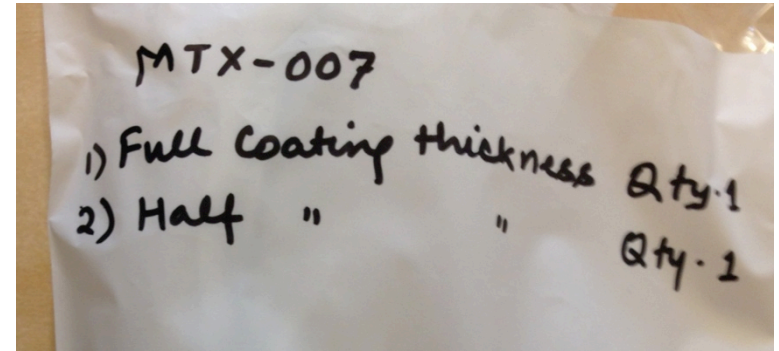 MTX-007
1) Full Coating thickness Qty.1
2) Half " " Qty.1